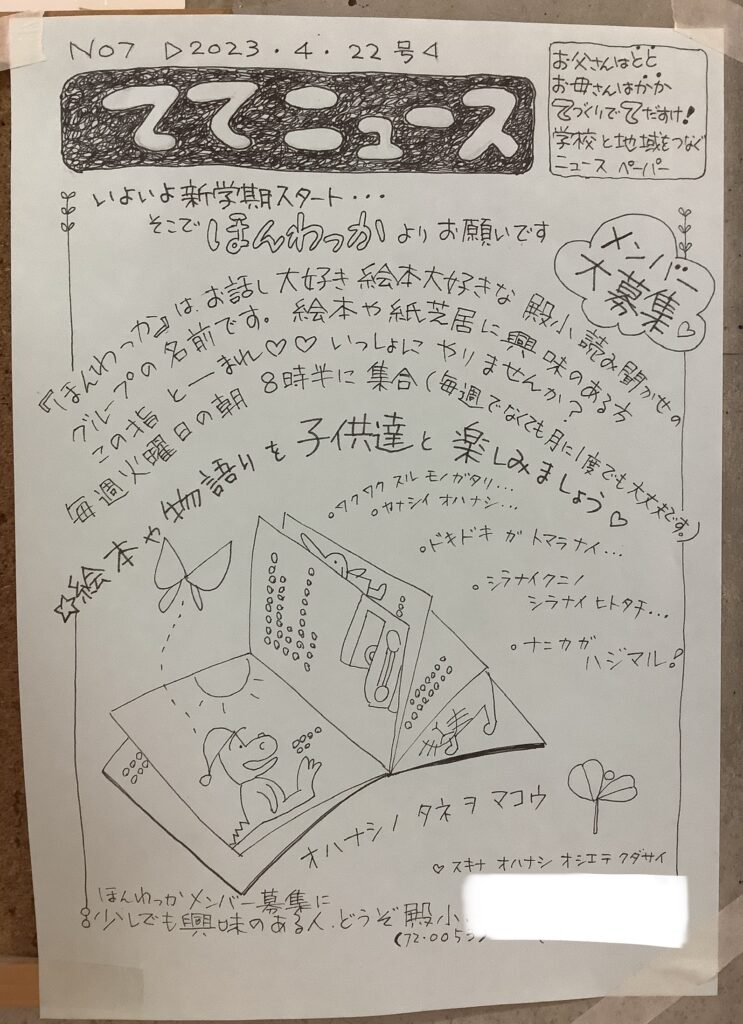 No7 ▷2023・4・22号◁
お父さんはとと
お母さんはかか
てづくりでてだすけ!
学校と地域をつなぐ
ニュース ペーパー
ててニュース
いよいよ新学期スタート・・・
そこで ほんわっか よりお願いです
メンバー
大募集♡
『ほんわっか』は、お話し大好き絵本大好きな殿小読み聞かせの
グループの名前です。絵本や紙芝居に興味のある方
この指とーまれ♡♡いっしょにやりませんか?
毎週火曜日の朝 8時半に集合(毎週でなくても月に1度でも大丈夫です。)
☆絵本や物語りを子供達と楽しみましょう♡
。ワクワクスルモノガタリ...
。カナシイオハナシ...
。ドキドキ ガ トマラナイ...
。シラナイクニノ
シラナイヒトタチ...
。ナニカガ
ハジマル!
オハナシノ タネヲ マコウ
♡スキナ オハナシ オシエテ クダサイ
ほんわっかメンバー募集に
少しでも興味のある人、どうぞ殿小
(72-0053